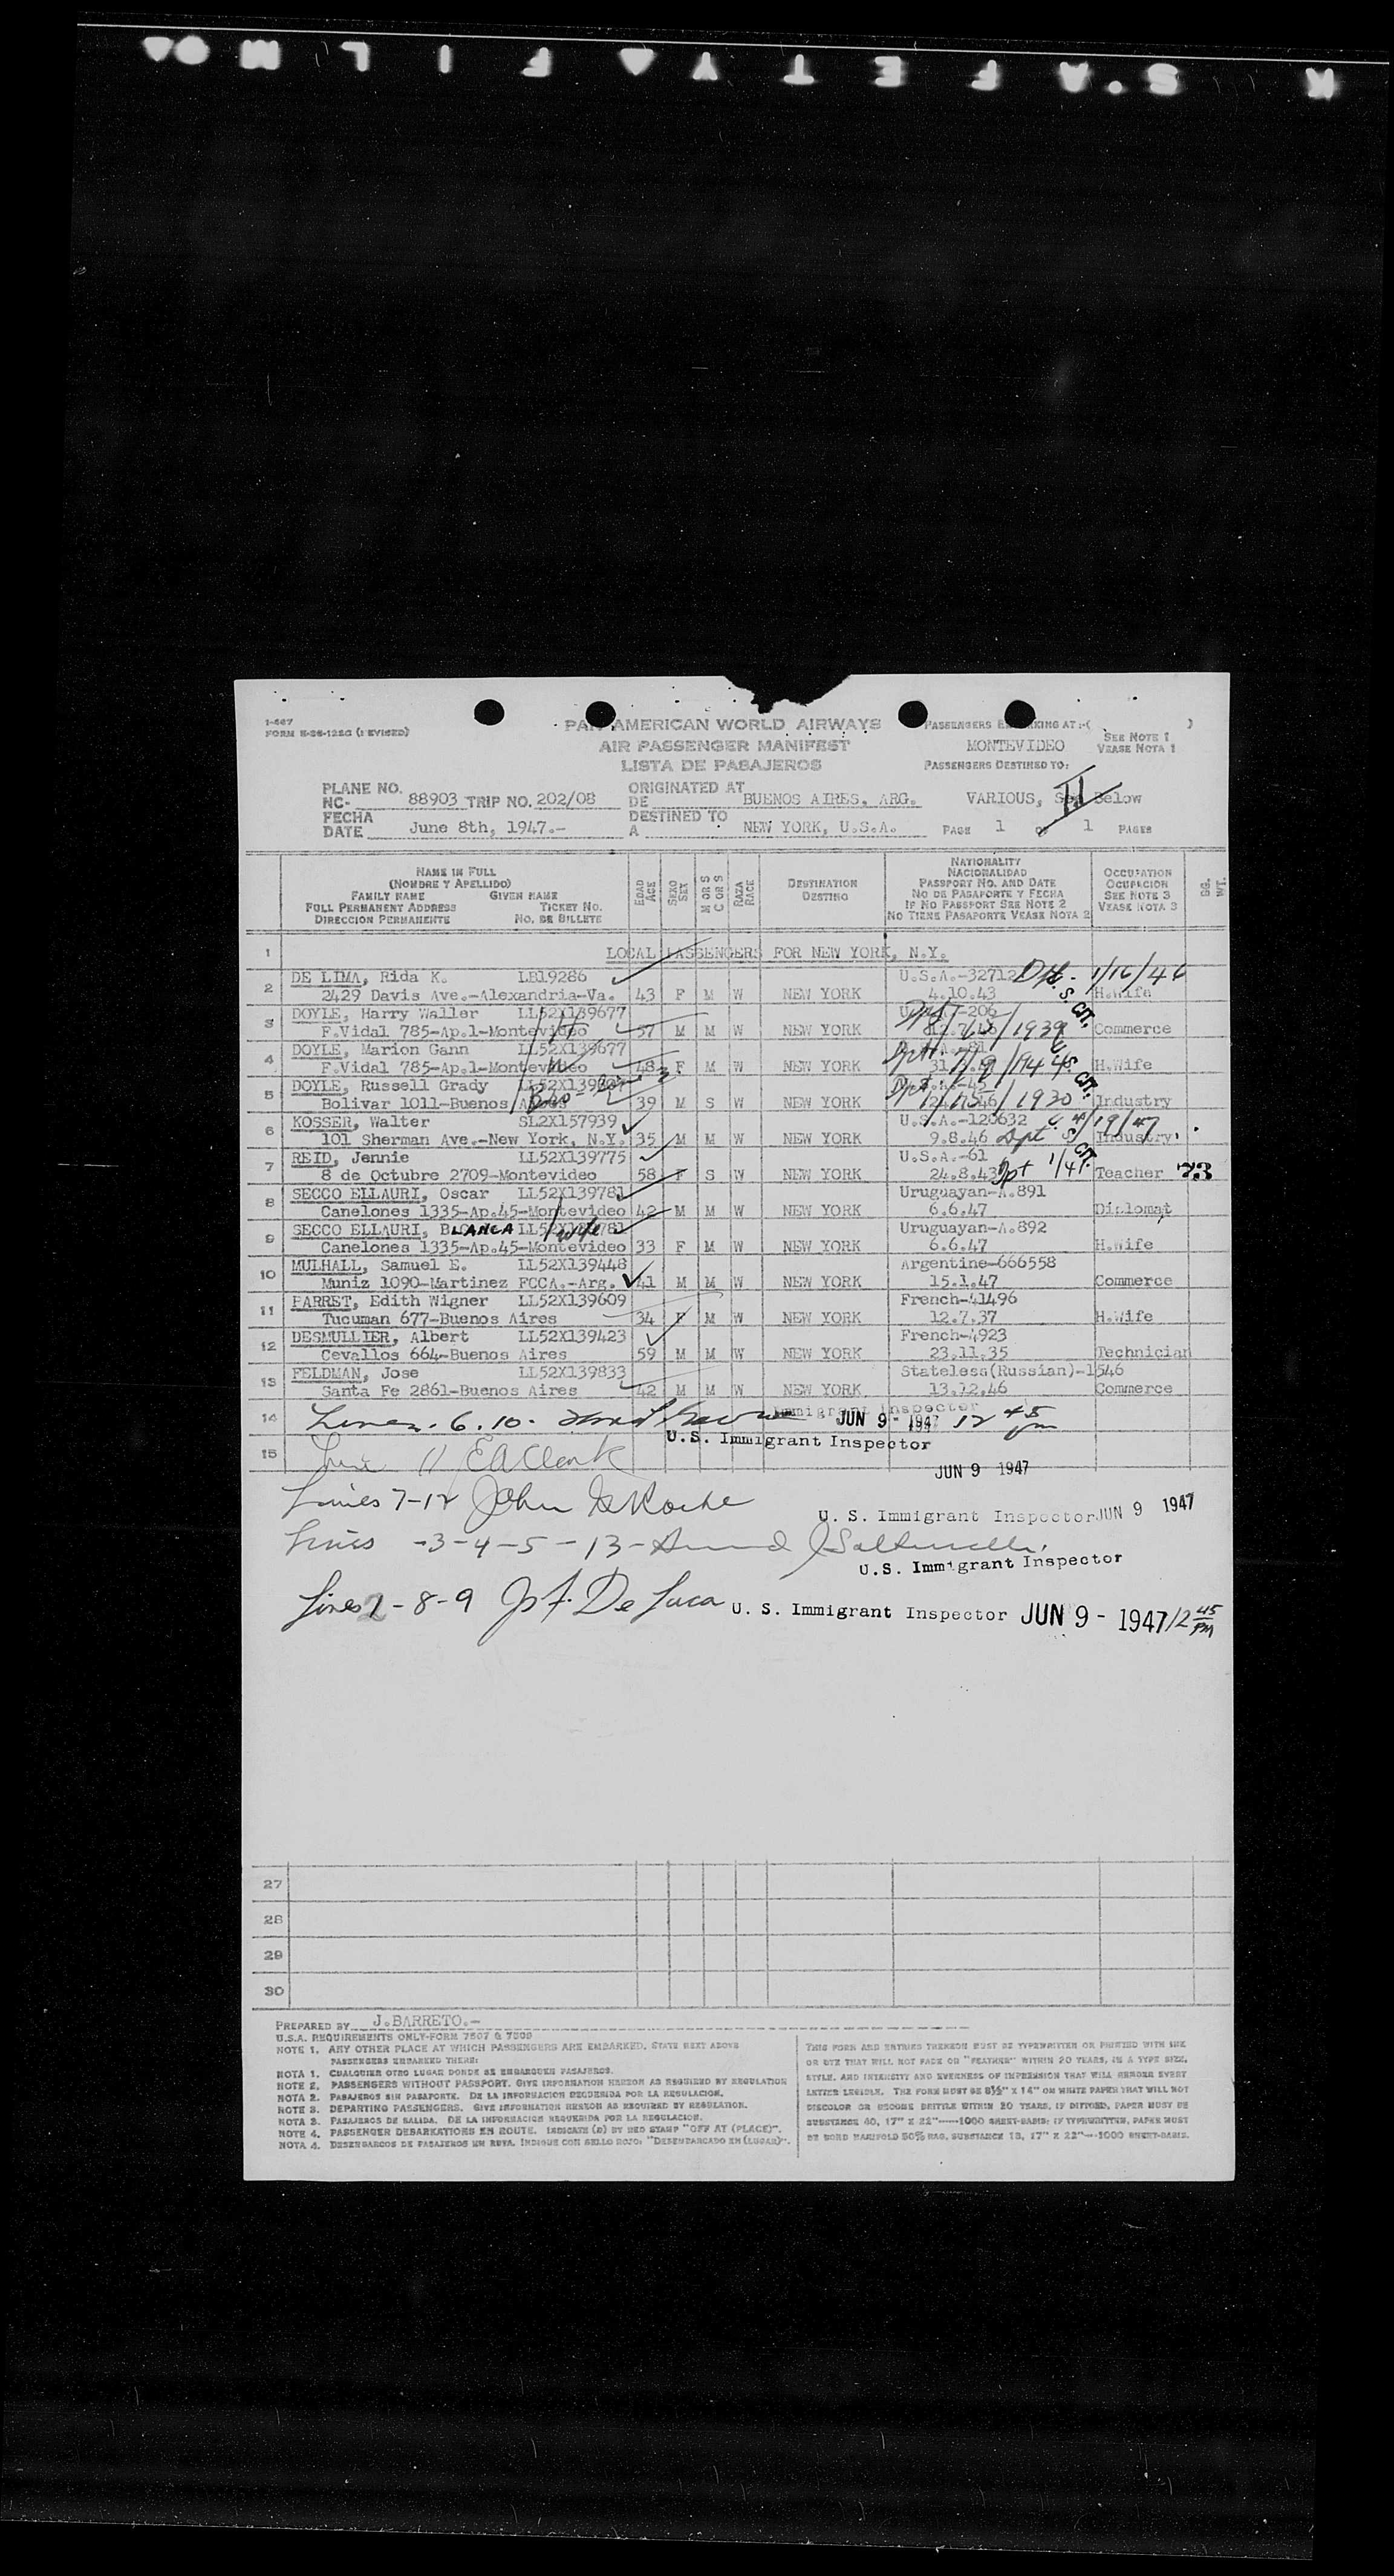 SAFETY FILM
1-467
FORM E-36-12SG (REVISED)
PAN AMERICAN WORLD AIRWAYS
AIR PASSENGER MANIFEST
LISTA DE PASAJEROS
PASSENGERS EMBARKING AT:-( )
MONTEVIDEO
SEE NOTE 1
VEASE NOTA 1
PASSENGERS DESTINED TO:
VARIOUS, See Below
PLANE NO.
NC- 88903 TRIP NO. 202/08
ORIGINATED AT
DE BUENOS AIRES, ARG.
FECHA
DATE June 8th, 1947.-
DESTINED TO
A NEW YORK, U.S.A.
PAGE 1 OF 1 PAGES
NAME IN FULL
(NOMBRE Y APELLIDO)
FAMILY NAME GIVEN NAME
FULL PERMANENT ADDRESS TICKET NO.
DIRECCION PERMANENTE NO. DE BILLETE
EDAD AGE
SEXO SEX
M OR S C OR S
RAZA RACE
DESTINATION
DESTINO
NATIONALITY
NACIONALIDAD
PASSPORT NO. AND DATE
NO DE PASAPORTE Y FECHA
IF NO PASSPORT SEE NOTE 2
NO TIENE PASAPORTE VEASE NOTA 2
OCCUPATION
OCUPACION
SEE NOTE 3
VEASE NOTA 3
BG. WT.
1 LOCAL PASSENGERS FOR NEW YORK, N.Y.
2 DE LIMA, Rida K. LB19286 U.S.A.-32712 1/16/46
2429 Davis Ave.-Alexandria-Va. 43 F M W NEW YORK 4.10.43 H.Wife
3 DOYLE, Harry Waller LL52X139677 -206
F.Vidal 785-Ap.1-Montevideo 57 M M W NEW YORK 1939 Commerce
4 DOYLE, Marion Gann LL52X139677 -81
F.Vidal 785-Ap.1-Montevideo 48 F M W NEW YORK H.Wife
5 DOYLE, Russell Grady
Bolivar 1011-Buenos Aires 39 M S W NEW YORK 1930 Industry
6 KOSSER, Walter SL2X157939 U.S.A.-120632
101 Sherman Ave.-New York, N.Y. 35 M M W NEW YORK 9.8.46 Industry
7 REID, Jennie LL52X139775 U.S.A.-61
8 de Octubre 2709-Montevideo 58 F S W NEW YORK 24.8.43 Dpt 1/41 Teacher 73
8 SECCO ELLAURI, Oscar LL52X139781 Uruguayan-A.891
Canelones 1335-Ap.45-Montevideo 42 M M W NEW YORK 6.6.47 Diplomat
9 SECCO ELLAURI, BLANCA LL52X139781 wife Uruguayan-A.892
Canelones 1335-Ap.45-Montevideo 33 F M W NEW YORK 6.6.47 H.Wife
10 MULHALL, Samuel E. LL52X139448 Argentine-666558
Muniz 1090-Martinez FCCA.-Arg. 41 M M W NEW YORK 15.1.47 Commerce
11 PARRET, Edith Wigner LL52X139609 French-41496
Tucuman 677-Buenos Aires 34 F M W NEW YORK 12.7.37 H.Wife
12 DESMULLIER, Albert LL52X139423 French-4923
Cevallos 664-Buenos Aires 59 M M W NEW YORK 23.11.35 Technician
13 FELDMAN, Jose LL52X139833 Stateless(Russian)-1546
Santa Fe 2861-Buenos Aires 42 M M W NEW YORK 13.12.46 Commerce
14 Lines. 6.10. Immigrant Inspector JUN 9 - 1947 12 45 pm
U.S. Immigrant Inspector
15 Line 11 E A Clark JUN 9 1947
Lines 7-12 John
U. S. Immigrant Inspector JUN 9 1947
Lines -3-4-5-13-
U.S. Immigrant Inspector
Lines 2-8-9 De Luca U. S. Immigrant Inspector JUN 9 - 1947 12 45 PM
27
28
29
30
PREPARED BY J.BARRETO.-
U.S.A. REQUIREMENTS ONLY-FORM 7507 & 7509
NOTE 1. ANY OTHER PLACE AT WHICH PASSENGERS ARE EMBARKED, STATE NEXT ABOVE
PASSENGERS EMBARKED THERE:
NOTA 1. CUALQUIER OTRO LUGAR DONDE SE EMBARQUEN PASAJEROS.
NOTE 2. PASSENGERS WITHOUT PASSPORT. GIVE INFORMATION HEREON AS REQUIRED BY REGULATION
NOTA 2. PASAJEROS SIN PASAPORTE. DE LA INFORMACION REQUERIDA POR LA REGULACION.
NOTE 3. DEPARTING PASSENGERS. GIVE INFORMATION HEREON AS REQUIRED BY REGULATION.
NOTA 3. PASAJEROS DE SALIDA. DE LA INFORMACION REQUERIDA POR LA REGULACION.
NOTE 4. PASSENGER DEBARKATIONS EN ROUTE. INDICATE (D) BY RED STAMP "OFF AT (PLACE)".
NOTA 4. DESEMBARCOS DE PASAJEROS EN RUTA. INDIQUE CON SELLO ROJO: "DESEMBARCADO EN (LUGAR)".
THIS FORM AND ENTRIES THEREON MUST BE TYPEWRITTEN OR PRINTED WITH INK
OR DYE THAT WILL NOT FADE OR "FEATHER" WITHIN 20 YEARS, IN A TYPE SIZE,
STYLE, AND INTENSITY AND EVENNESS OF IMPRESSION THAT WILL RENDER EVERY
LETTER LEGIBLE. THE FORM MUST BE 8½" X 14" ON WHITE PAPER THAT WILL NOT
DISCOLOR OR BECOME BRITTLE WITHIN 20 YEARS. IF DITTOED, PAPER MUST BE
SUBSTANCE 40, 17" X 22"-----1000 SHEET-BASIS; IF TYPEWRITTEN, PAPER MUST
BE BOND MANIFOLD 50% RAG, SUBSTANCE 18, 17" X 22"---1000 SHEET-BASIS.